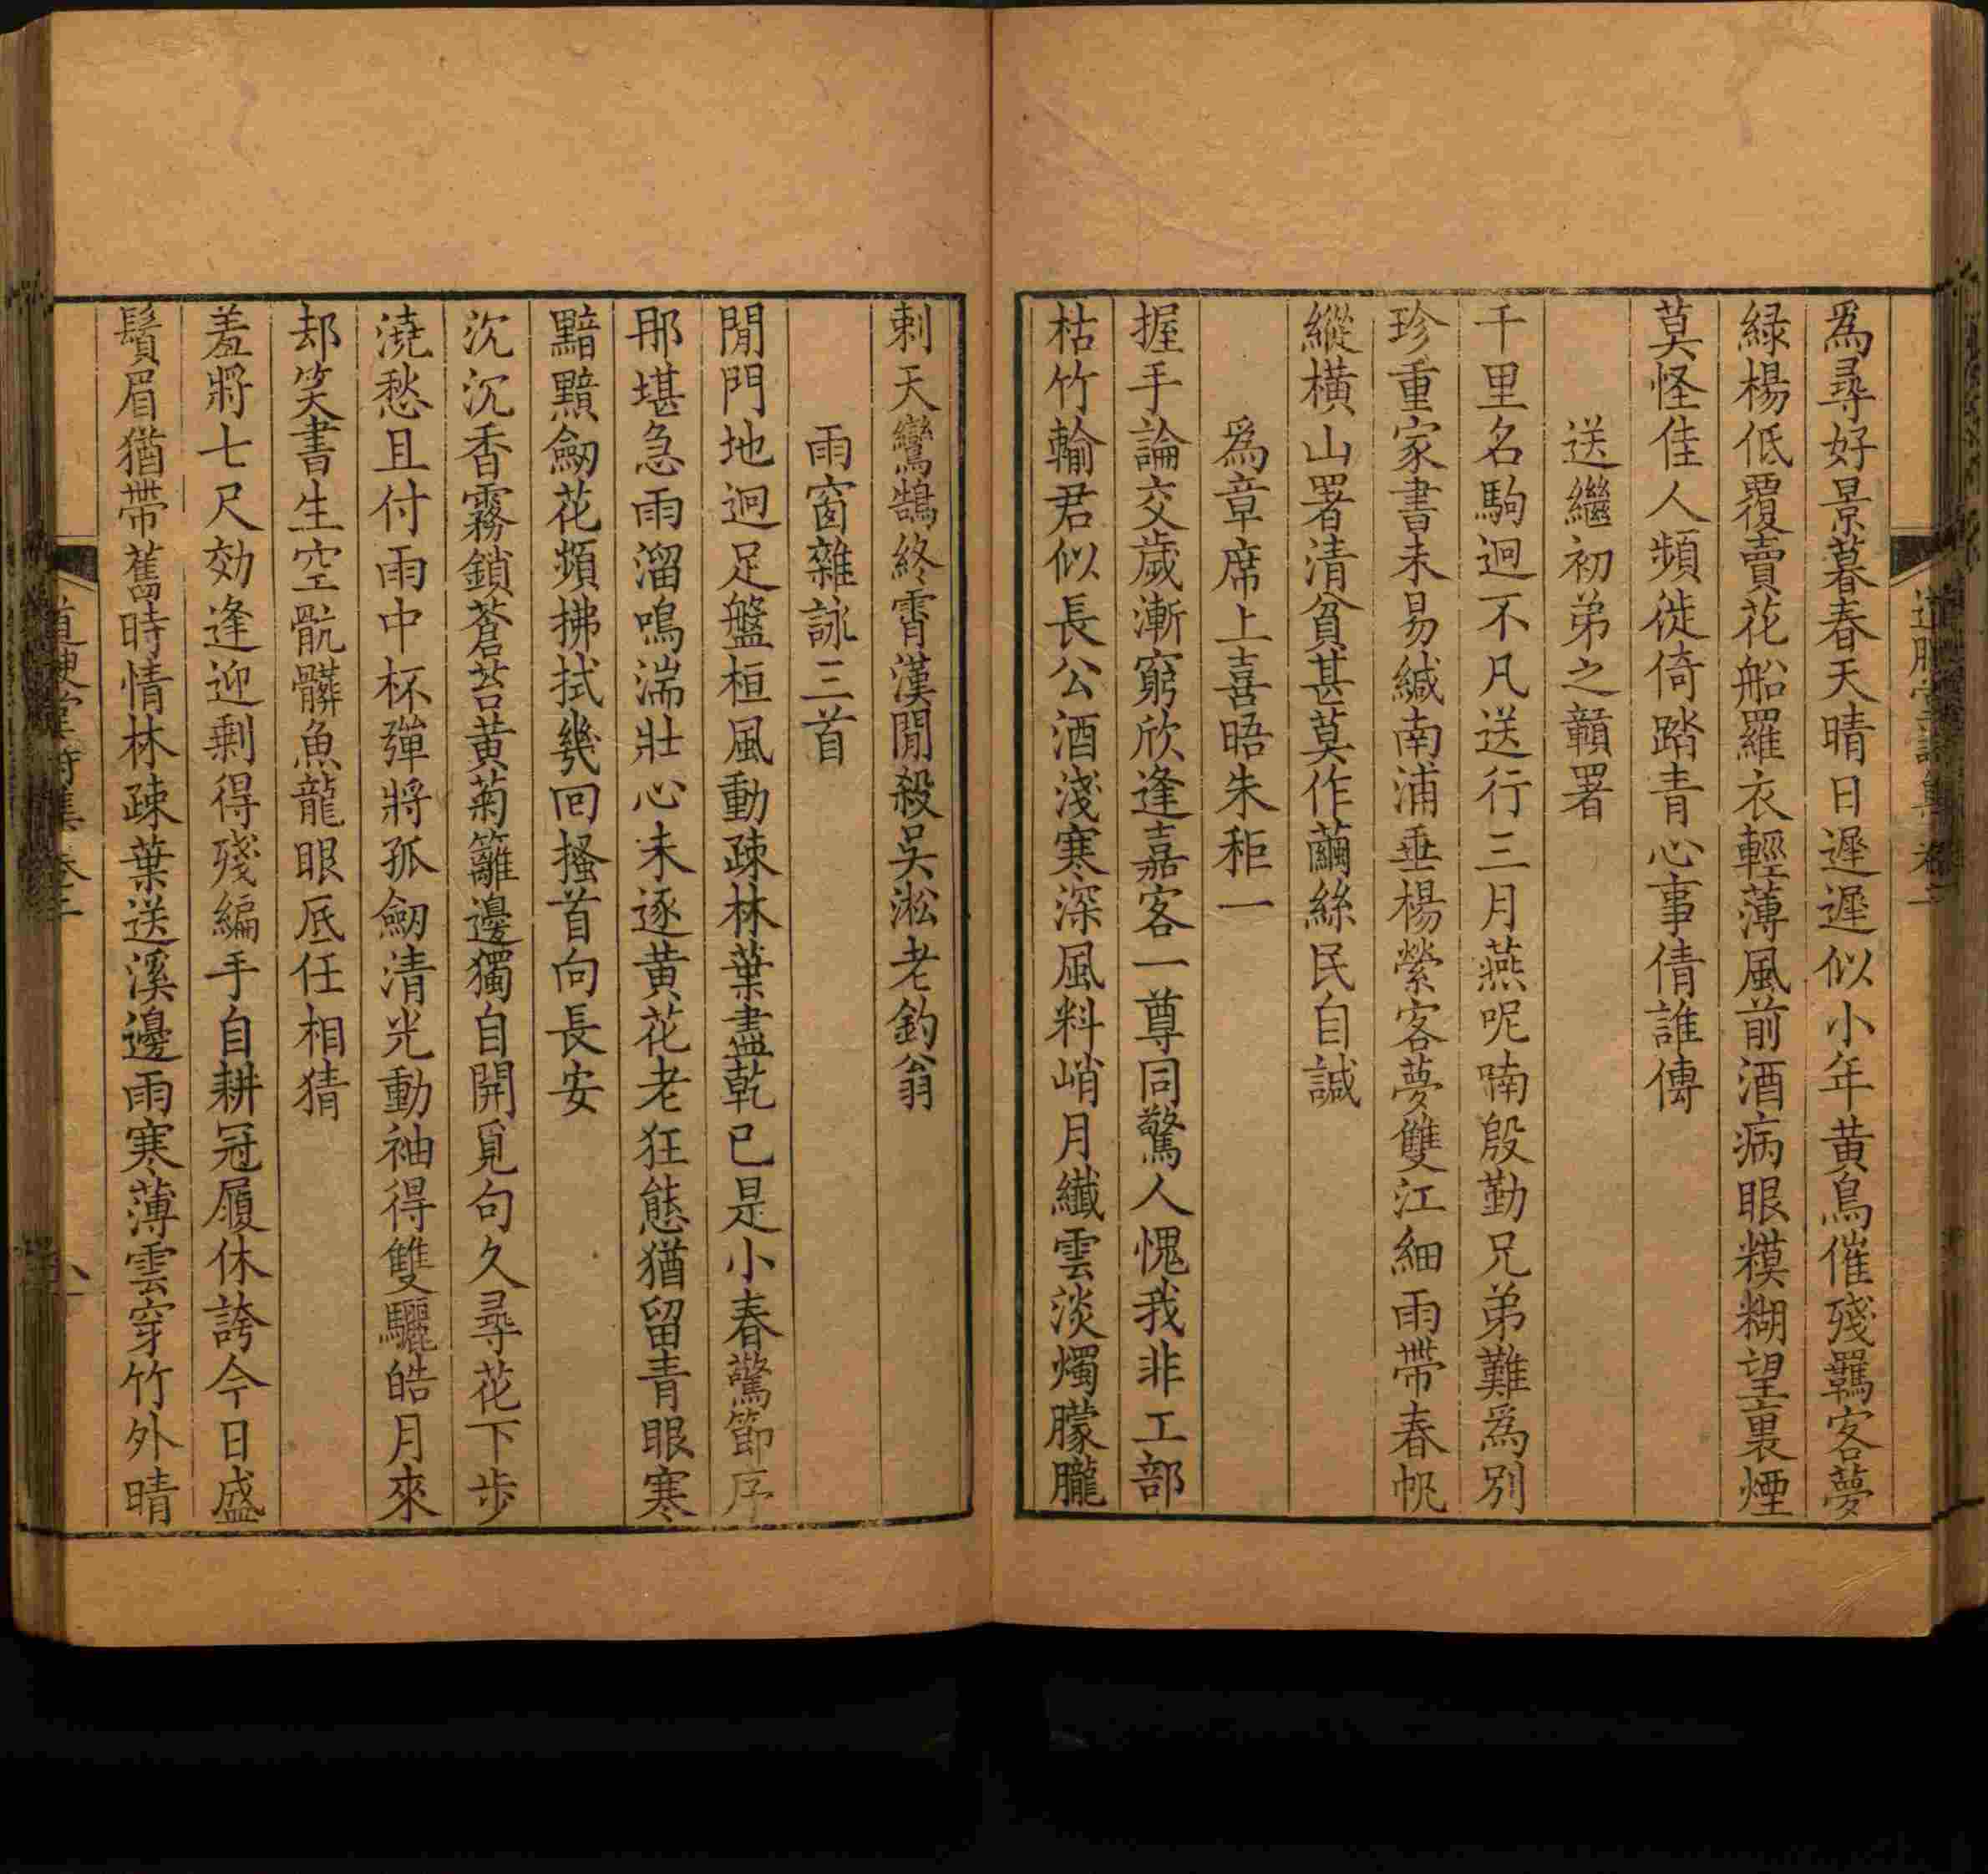 爲尋好景暮春天晴日遲遲似小年黄鳥催殘羈客夢
緑楊低覆賣花船羅衣輕薄風前酒病眼糢糊望裏煙
莫怪佳人頻徙倚踏青心事倩誰傳
送繼初弟之贛署
千里名駒迥不凡送行三月燕呢喃殷勤兄弟難爲别
珍重家書未易緘南浦垂楊縈客夢雙江細雨帶春帆
縱橫山署清貧甚莫作繭絲民自諴
爲章席上喜晤朱秬一
握手論交歲漸窮欣逢嘉客一尊同驚人愧我非工部
枯竹輸君似長公酒淺寒深風料峭月纖雲淡燭朦朧
刺天鸞鵠終霄漢閒殺吴淞老釣翁
雨窗雜詠三首
閒門地迥足盤桓風動疎林葉盡乾已是小春驚節序
那堪急雨溜鳴湍壯心未逐黄花老狂態猶留青眼寒
黯黮劒花頻拂拭幾回搔首向長安
沉沉香霧鎖蒼苔黄菊籬邊獨自開覓句久尋花下步
澆愁且付雨中杯彈將孤劒清光動袖得雙驪皓月來
却笑書生空骯髒魚龍眼底任相猜
羞將七尺効逢迎剩得殘編手自耕冠履休誇今日盛
鬚眉猶帶舊時情林疎葉送溪邊雨寒薄雲穿竹外晴